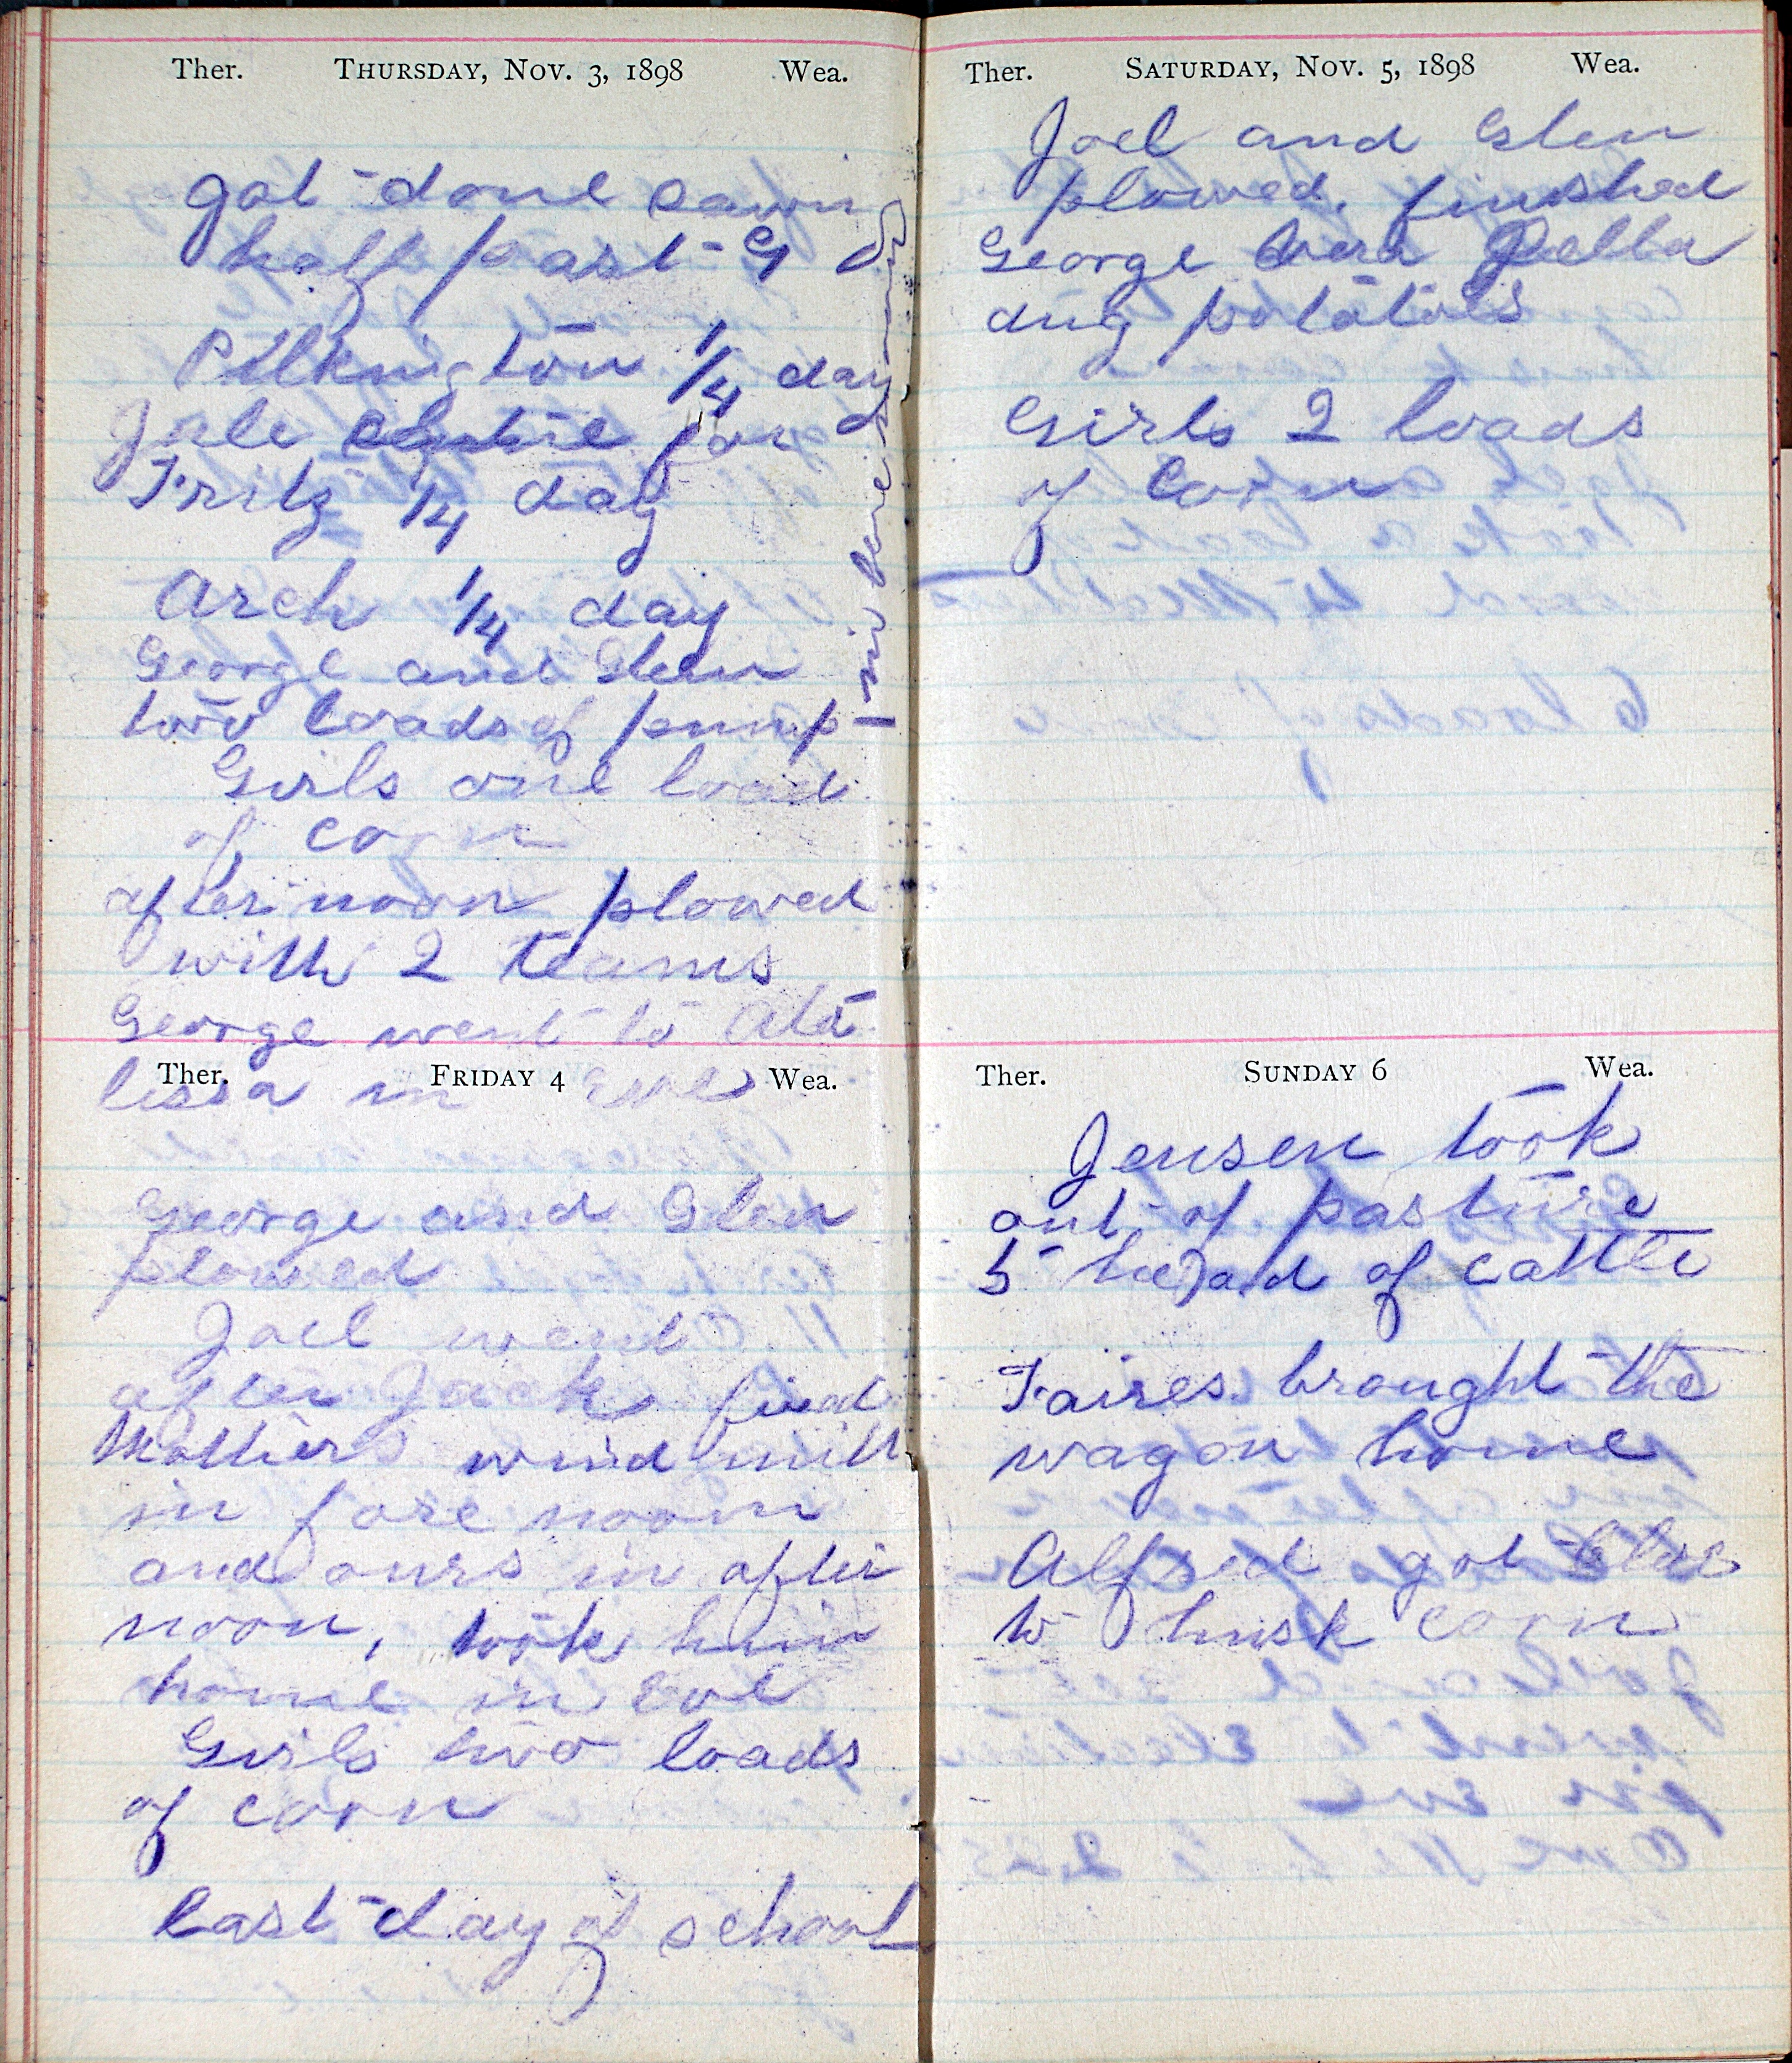 Ther. THURSDAY, NOV. 3, 1898 Wea.
got done sawing
half past 9
Pilkington 1/4 day
for
Fritz 1/4 day
Arch 1/4 day
George and Glen
two loads of pump
Girls one load
of corn
after noon plowed
with 2 teams
George went to Ata
lissa in eve
Ther. FRIDAY 4 Wea.
George and Glen
plowed
Joel went
after Jack fixed
Mothers wind mill
in fore noon
and ours in after
noon, took him
home in eve
Girls two loads
of corn
last day of school
Ther. SATURDAY, NOV. 5, 1898 Wea.
Joel and Glen
plowed. finished
George Vera Della
dug potatoes
Girls 2 loads
of corn
Ther. SUNDAY 6 Wea.
Jensen took
out of pasture
5 head of cattle
Faires brought the
wagon home
Alfred got
to husk corn